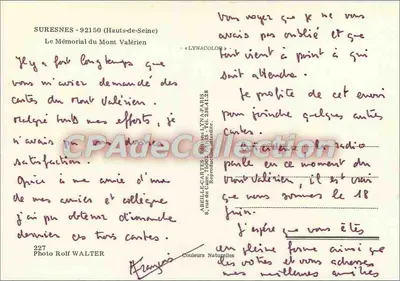 SURESNES - 92150 (Hauts-de-Seine)
Le Mémorial du Mont Valérien
Il y a fort longtemps que
vous m'aviez demandé des
cartes du Mont Valérien.
Malgré tous mes efforts, je
n'avais pu vous donner
satisfaction.
Grâce à une amie d'une
de mes amies et collègue
j'ai pu obtenir dimanche
dernier ces trois cartes.
227
Photo Rolf WALTER
François
Couleurs Naturelles
"LYNACOLOR"
ABEILLE-CARTES - Éditions LYNA-PARIS
8, rue du Caire, 75002 PARIS - Tél. 236.41.28
Reproduction interdite
Vous voyez que je ne vous
avais pas oublié et que
tout vient à point à qui
sait attendre.
Je profite de cet envoi
pour joindre quelques autres
cartes.
la radio
parle en ce moment du
Mont Valérien, il est vrai
que nous sommes le 18
juin.
J'espère que vous êtes
en pleine forme ainsi que
les vôtres et vous adresse
mes meilleures amitiés
CPAdeCollection